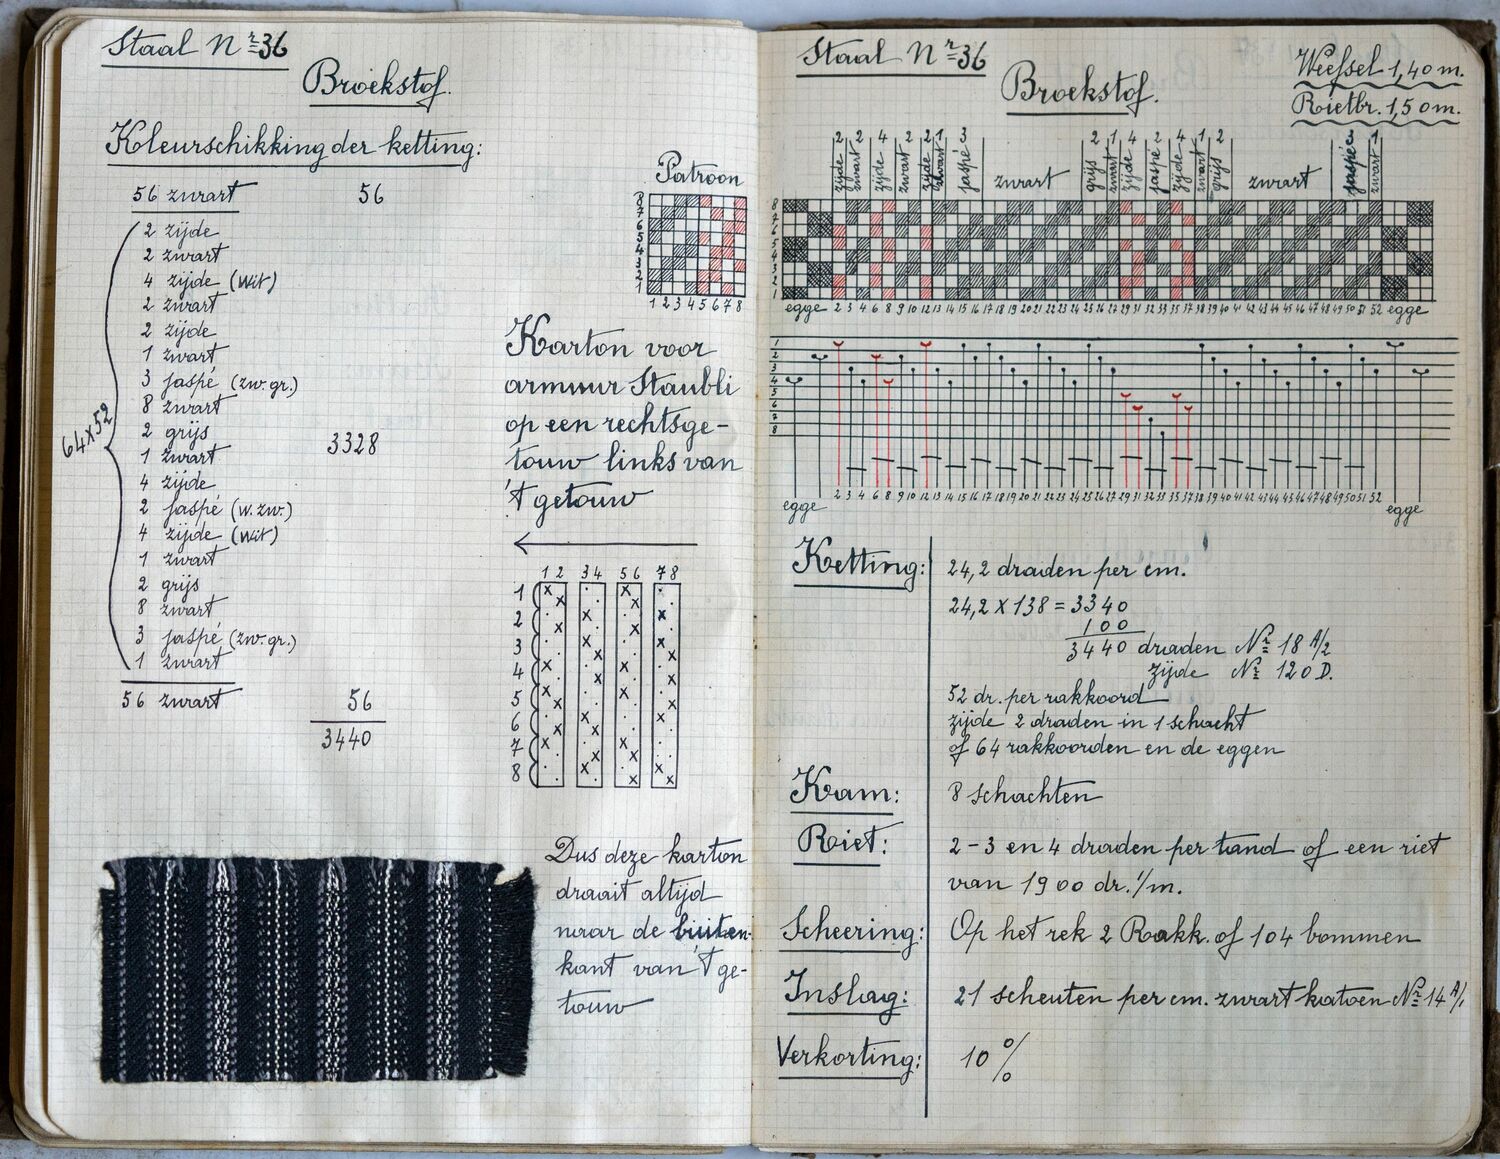 Staal Nr 36
Broekstof.
Kleurschikking der ketting:
56 zwart 56
2 zijde
2 zwart
4 zijde (wit)
2 zwart
2 zijde
1 zwart
3 jaspé (zw. gr.)
8 zwart
2 grijs
1 zwart
4 zijde
2 jaspé (w. zw.)
4 zijde (wit)
1 zwart
2 grijs
8 zwart
3 jaspé (zw. gr.)
1 zwart
64 x 52
3328
56 zwart 56
3440
Patroon
8
7
6
5
4
3
2
1
1 2 3 4 5 6 7 8
Karton voor
armuur Staubli
op een rechtsge-
touw links van
't getouw
1 2 3 4 5 6 7 8
1
2
3
4
5
6
7
8
Dus deze karton
draait altijd
naar de buiten-
kant van 't ge-
touw
Staal Nr 36
Broekstof.
Weefsel 1,40 m.
Rietbr. 1,50 m.
zijde 2
zwart 2
zijde 4
zwart 2
zijde 2
zwart 1
jaspé 3
zwart
grijs 2
zwart 1
zijde 4
jaspé 2
zijde 4
zwart 1
grijs 2
zwart
jaspé 3
zwart 1
8
7
6
5
4
3
2
1
egge 2 3 4 6 8 9 10 12 13 14 15 16 17 18 19 20 21 22 23 24 25 26 27 29 31 32 33 35 37 38 39 40 41 42 43 44 45 46 47 48 49 50 51 52 egge
1
2
3
4
5
6
7
8
2 3 4 6 8 9 10 12 13 14 15 16 17 18 19 20 21 22 23 24 25 26 27 29 31 32 33 35 37 38 39 40 41 42 43 44 45 46 47 48 49 50 51 52
egge egge
Ketting: 24,2 draden per cm.
24,2 x 138 = 3340
100
3440 draden Nr 18 A/2
zijde Nr 120 D.
52 dr. per rakkoord
zijde 2 draden in 1 schacht
of 64 rakkoorden en de eggen
Kam: 8 schachten
Riet: 2 - 3 en 4 draden per tand of een riet
van 1900 dr. 1/m.
Scheering: Op het rek 2 Rakk. of 104 bommen
Inslag: 21 scheuten per cm. zwart katoen Nr 14 A/1
Verkorting: 10 %